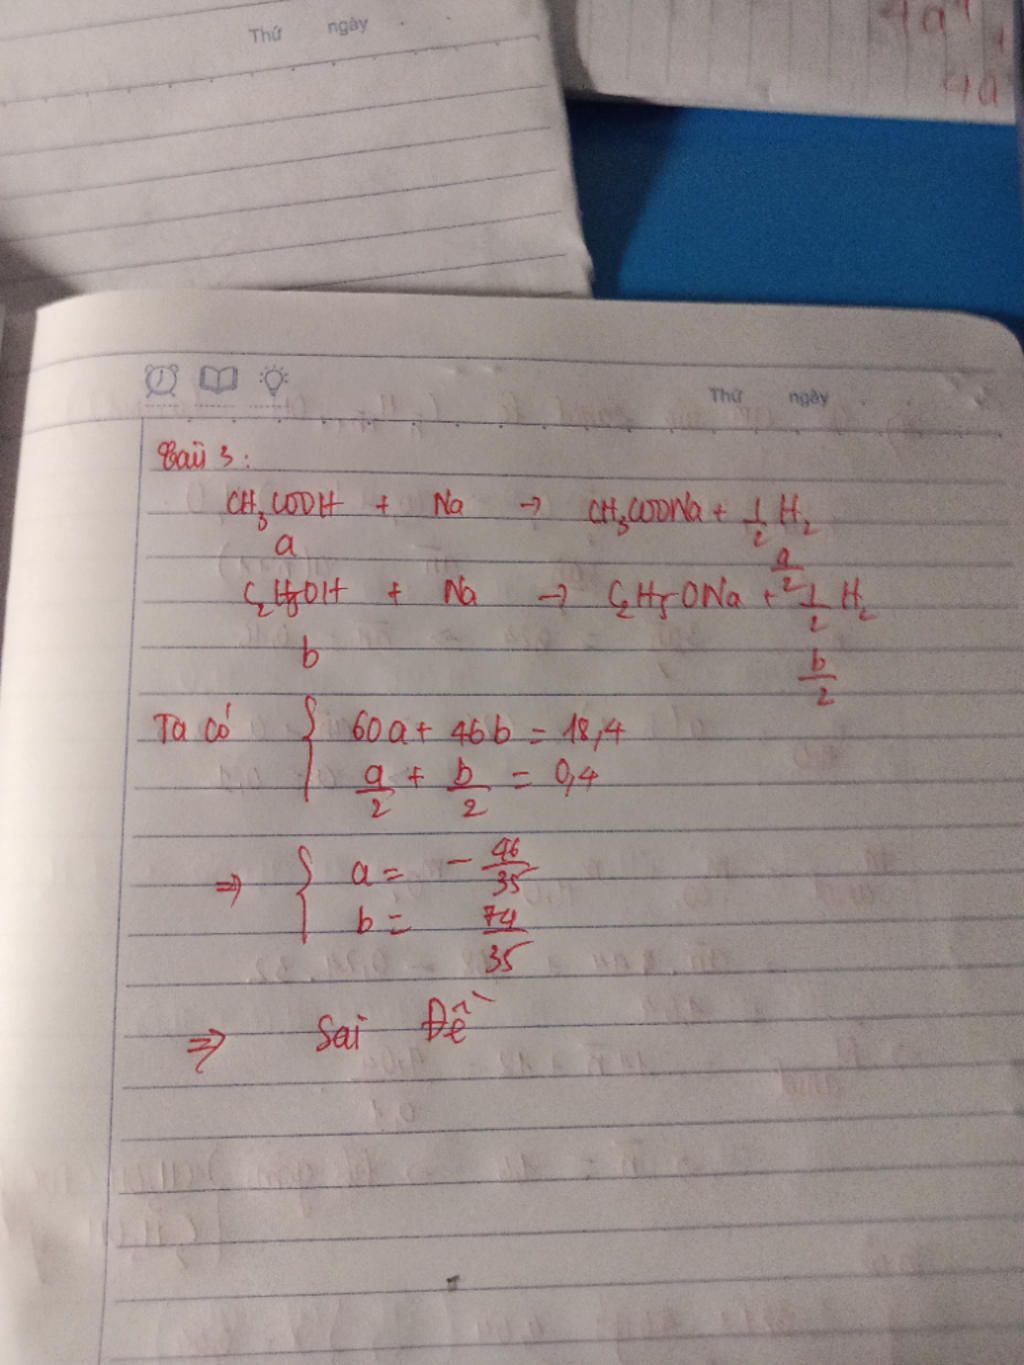 Thứ ngày
4a
4a
Thứ ngày
Câu 3:
CH₃COOH + Na → CH₃COONa + 1/2 H₂
a a/2
C₂H₅OH + Na → C₂H₅ONa + 1/2 H₂
b b/2
Ta có { 60a + 46b = 18,4
a/2 + b/2 = 0,4
⇒ { a = - 46/35
b = 74/35
⇒ Sai Đề